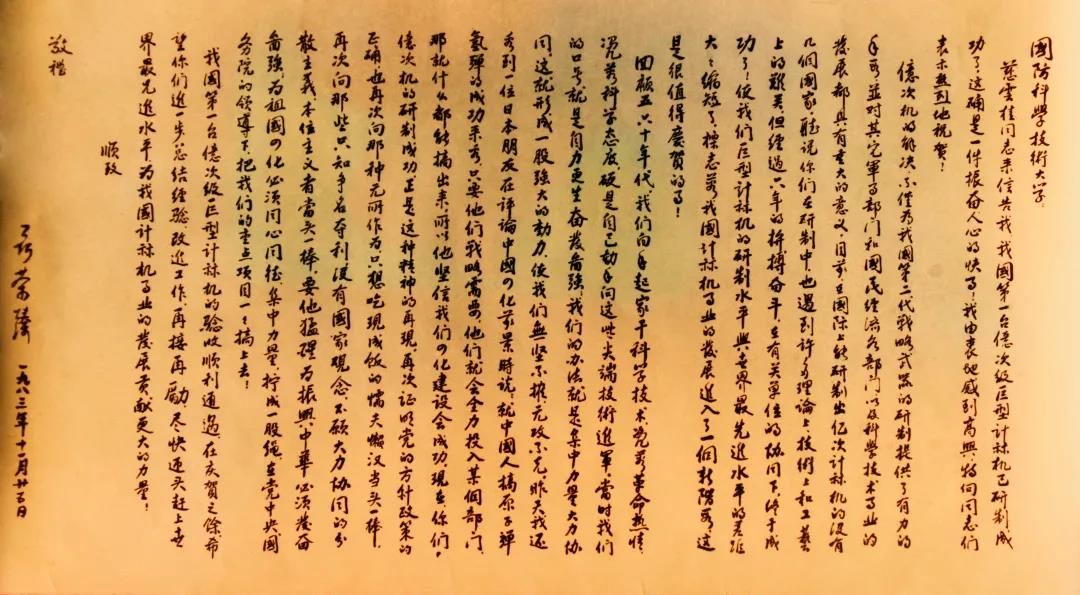 国防科學技術大学:
慈雲桂同志来信告我,我國第一台億次级巨型计祘机已研制成
功了,这确是一件振奋人心的快事!我由衷地感到高興,特向同志们
表示热烈地祝贺!
億次机的解决,不僅为我國第二代戰略武器的研制提供了有力的
手段,並对其它軍事部门和國民经济各部门以及科學技术事业的
發展都具有重大的意义,目前在國际上能研制出亿次计祘机的没有
几個國家,聽说你们在研制中,也遇到许多理論上,技術上和工藝
上的難关,但经過六年的拚搏奋斗,在有关單位的协同下,终于成
功了!使我们巨型计祘机的研制水平與世界最先進水平的差距
大大缩短了,標志着我國计祘机事业的發展進入了一個新階段,这
是很值得慶贺的事!
回顧五、六十年代,我们白手起家干科学技术,凭着革命热情,
凭着科学态度,硬是自己动手向这些尖端技術進軍,當时我们
的口号就是自力更生奋發啚强,我们的办法就是集中力量大力协
同,这就形成一股强大的動力,使我们無坚不摧,无攻不克,昨天我还
看到一位日本朋友在评論中國四化前景時说:就中國人搞原子弹
氢弹的成功来看,只要他们戰略需要,他们就会全力投入某個部门,
那就什么都能搞出来,所以他坚信我们四化建设会成功,現在,你们
億次机的研制成功正是这种精神的再現,再次证明党的方针政策的
正确,也再次向那种无所作为,只想吃現成飯的懦夫懒汉当头一棒,
再次向那些只知争名夺利,没有國家观念,不顾大力协同的分
散主義,本位主义者當头一棒,要他猛醒,为振興中華必须發奋
啚强,为祖國四化必须同心同德,集中力量,拧成一股绳,在党中央國
务院的领導下,把我们的重点項目一一搞上去!
我國第一台億次级巨型计祘机的验收顺利通過,在庆贺之餘,希
望你们進一步总结经驗,改進工作,再接再励,尽快迎头赶上世
界最先進水平,为我國计祘机事业的發展贡献更大的力量!
顺致
敬禮
聂荣臻
一九八三年十一月廿五日